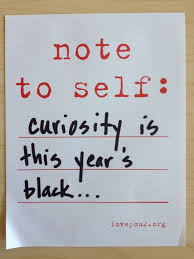 note
to self:
curiosity is
this year's
black...
loveyou2.org